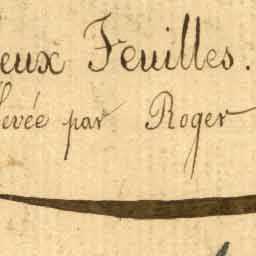 eux Feuilles.
levée par Roger